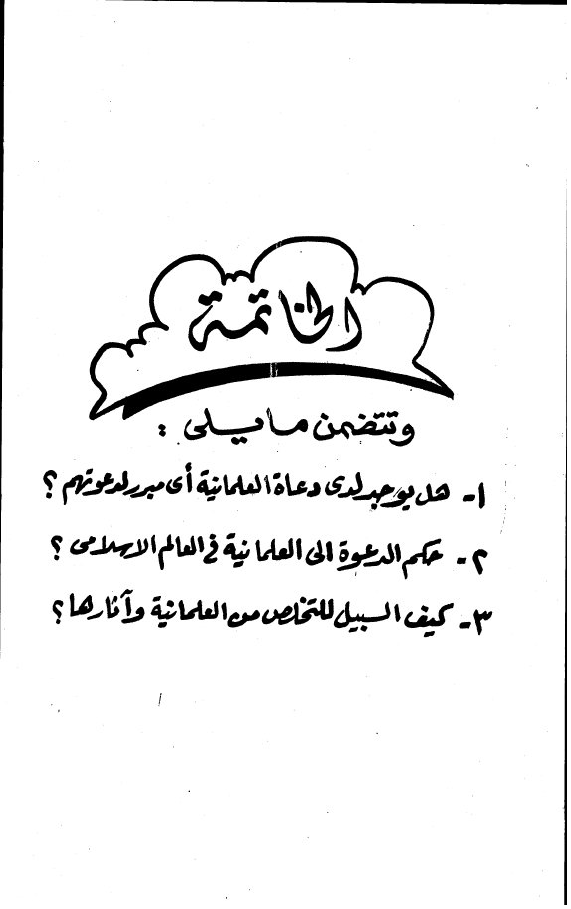 الخاتمة
وتتضمن ما يلى :
١- هل يوجد لدى دعاة العلمانية أى مبرر لدعوتهم ؟
٢- حكم الدعوة الى العلمانية فى العالم الاسلامى ؟
٣- كيف السبيل للتخلص من العلمانية وآثارها ؟